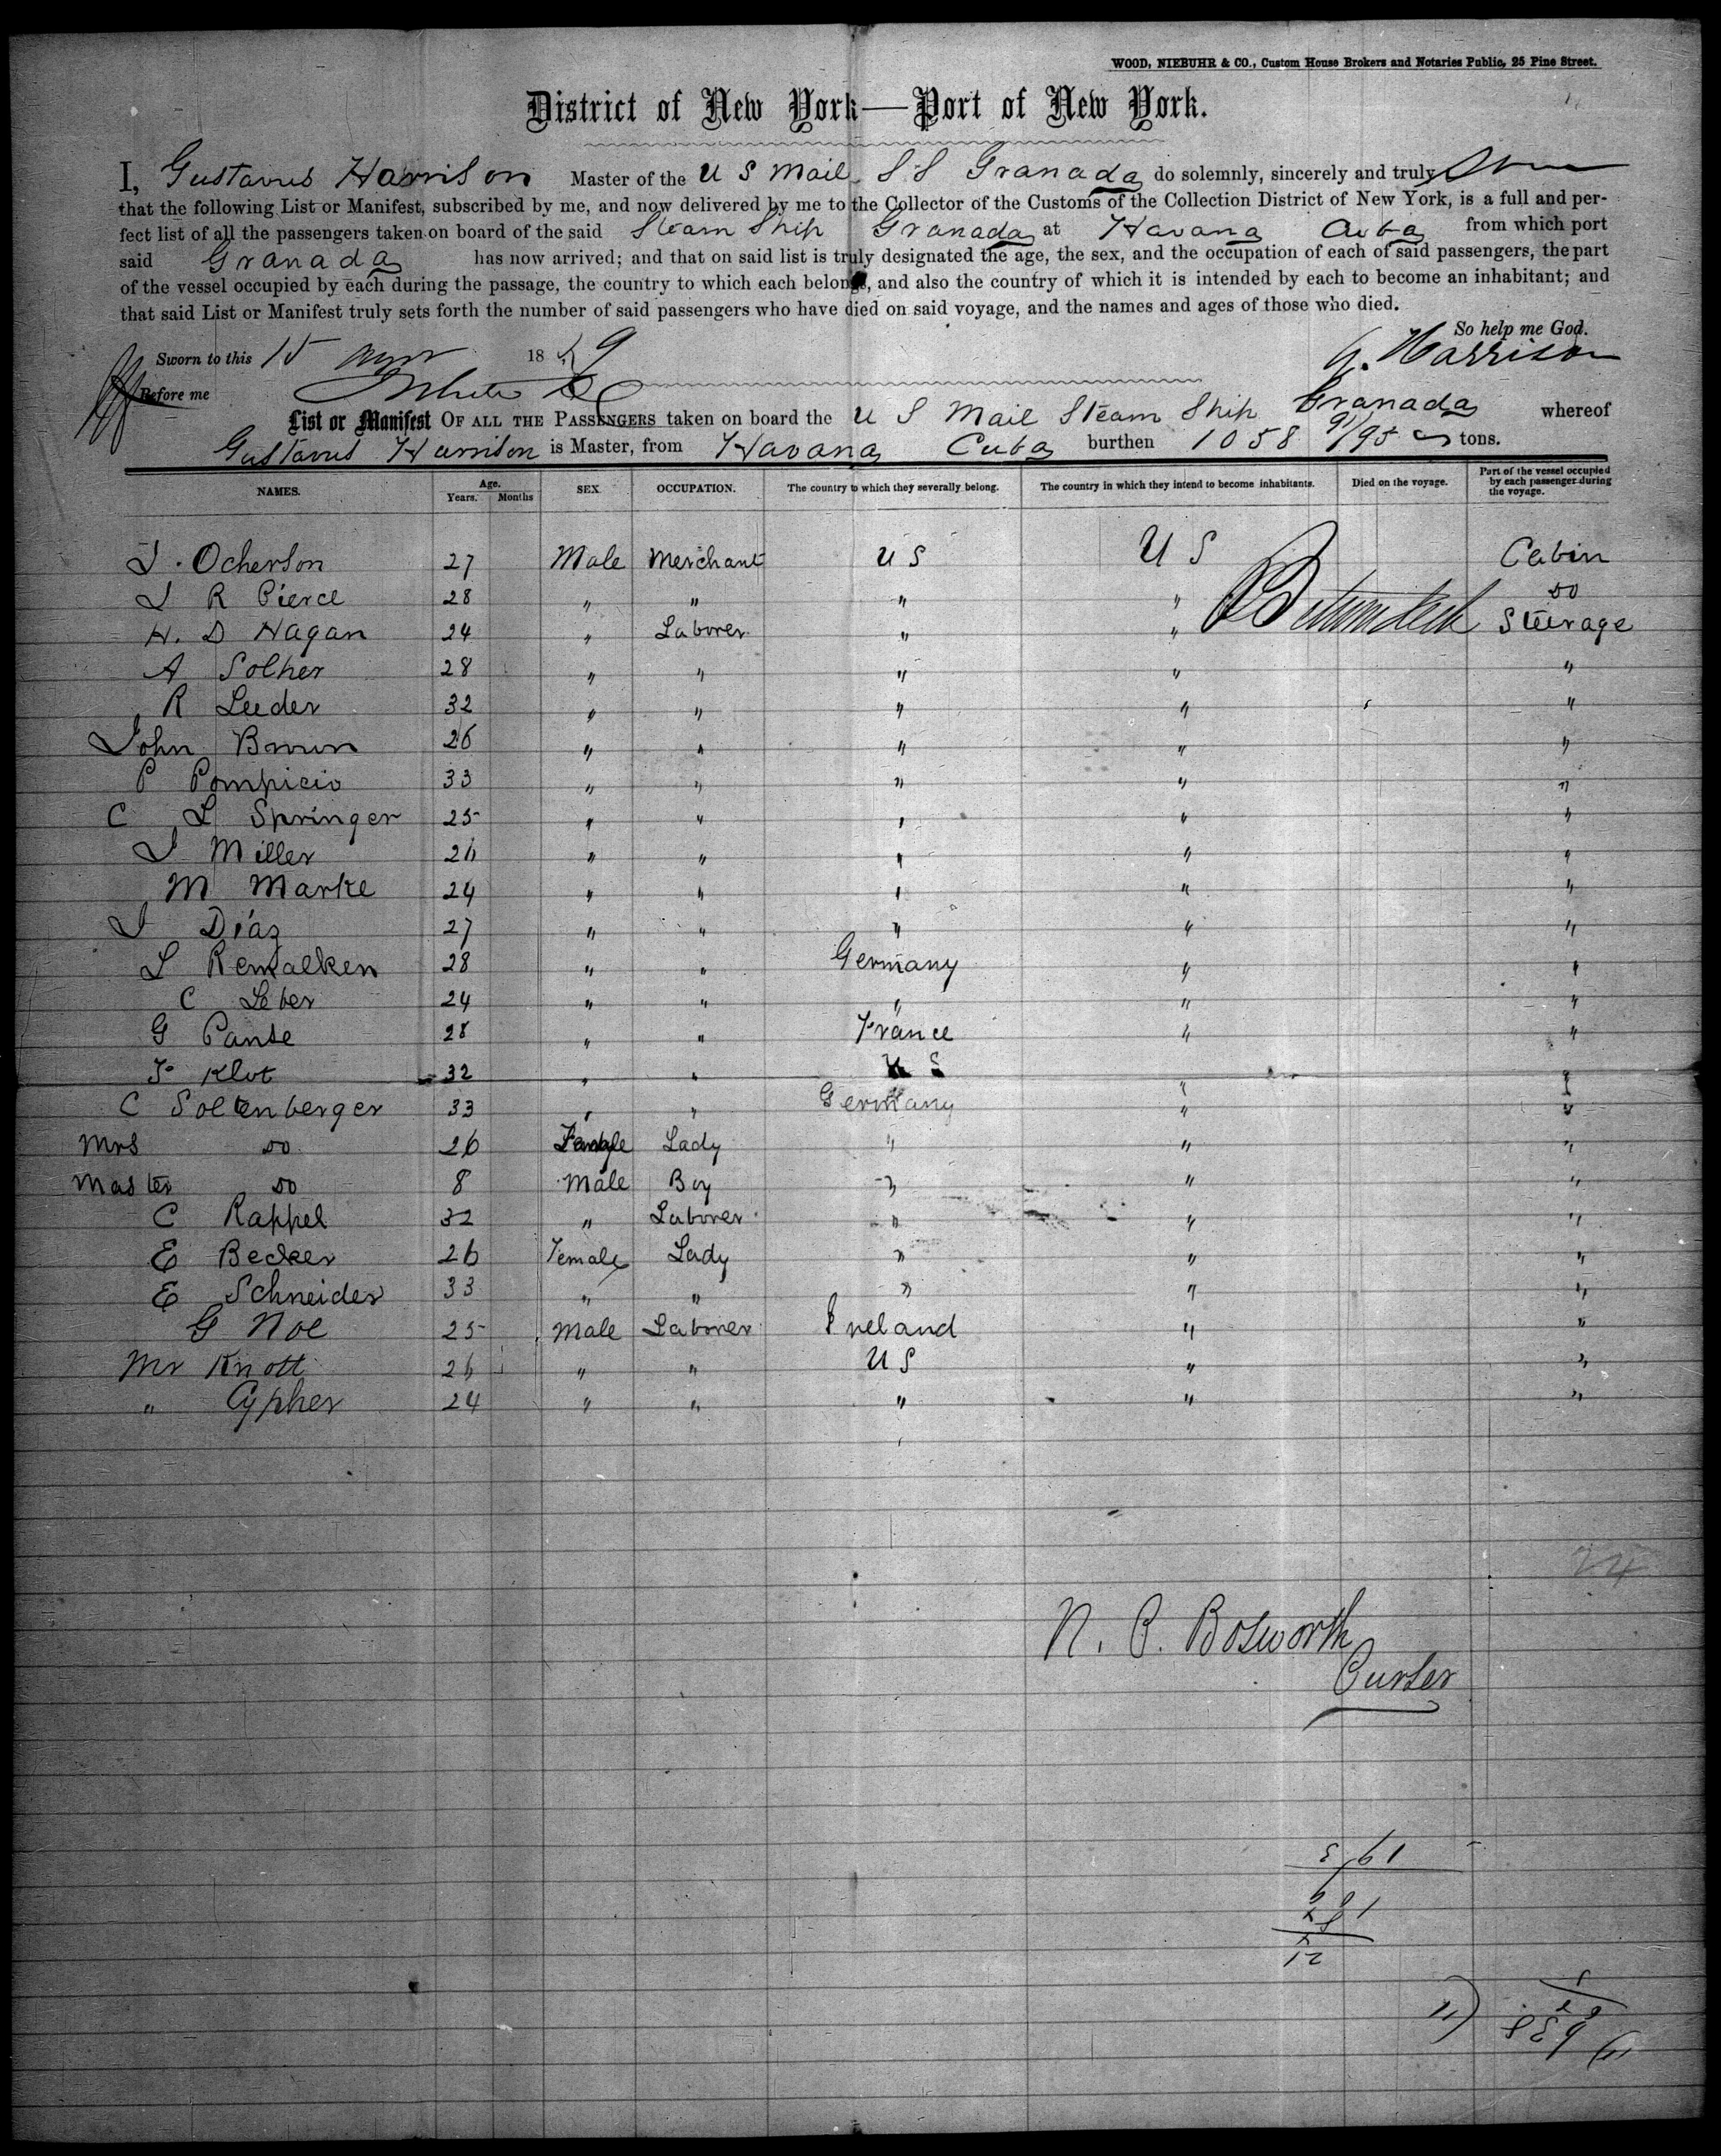 WOOD, NIEBUHR & CO., Custom House Brokers and Notaries Public, 25 Pine Street.
District of New York—Port of New York.
I, Gustavus Harrison Master of the U S Mail S S Granada do solemnly, sincerely and truly
that the following List or Manifest, subscribed by me, and now delivered by me to the Collector of the Customs of the Collection District of New York, is a full and per-
fect list of all the passengers taken on board of the said Steam Ship Granada at Havana Cuba from which port
said Granada has now arrived; and that on said list is truly designated the age, the sex, and the occupation of each of said passengers, the part
of the vessel occupied by each during the passage, the country to which each belongs, and also the country of which it is intended by each to become an inhabitant; and
that said List or Manifest truly sets forth the number of said passengers who have died on said voyage, and the names and ages of those who died.
So help me God.
Sworn to this 15 1859 G. Harrison
Before me
List or Manifest OF ALL THE PASSENGERS taken on board the U S Mail Steam Ship Granada whereof
Gustavus Harrison is Master, from Havana Cuba burthen 1058 91/95 tons.
NAMES. Age. Years. Months SEX. OCCUPATION. The country to which they severally belong. The country in which they intend to become inhabitants. Died on the voyage. Part of the vessel occupied by each passenger during the voyage.
J. Ocherson 27 Male Merchant U S U S Cabin
J R Pierce 28 " " " " do
H. D Hagan 24 " Laborer " " Steerage
A Solher 28 " " " " "
R Leeder 32 " " " " "
John Brown 26 " " " " "
P Pompicio 33 " " " " "
C L Springer 25 " " " " "
J Miller 26 " " " " "
M Marke 24 " " " " "
J Diaz 27 " " " " "
L Remalken 28 " " Germany " "
C Leber 24 " " " " "
G Panse 28 " " France " "
F Klot 32 " " U S " "
C Soltenberger 33 " " Germany " "
Mrs do 26 Female Lady " " "
Master do 8 Male Boy " " "
C Rappel 32 " Laborer " " "
E Becker 26 Female Lady " " "
E Schneider 33 " " " " "
G Noe 25 Male Laborer Ireland " "
Mr Knott 26 " " U S " "
" Cypher 24 " " " " "
24
N. P. Bosworth
Purser